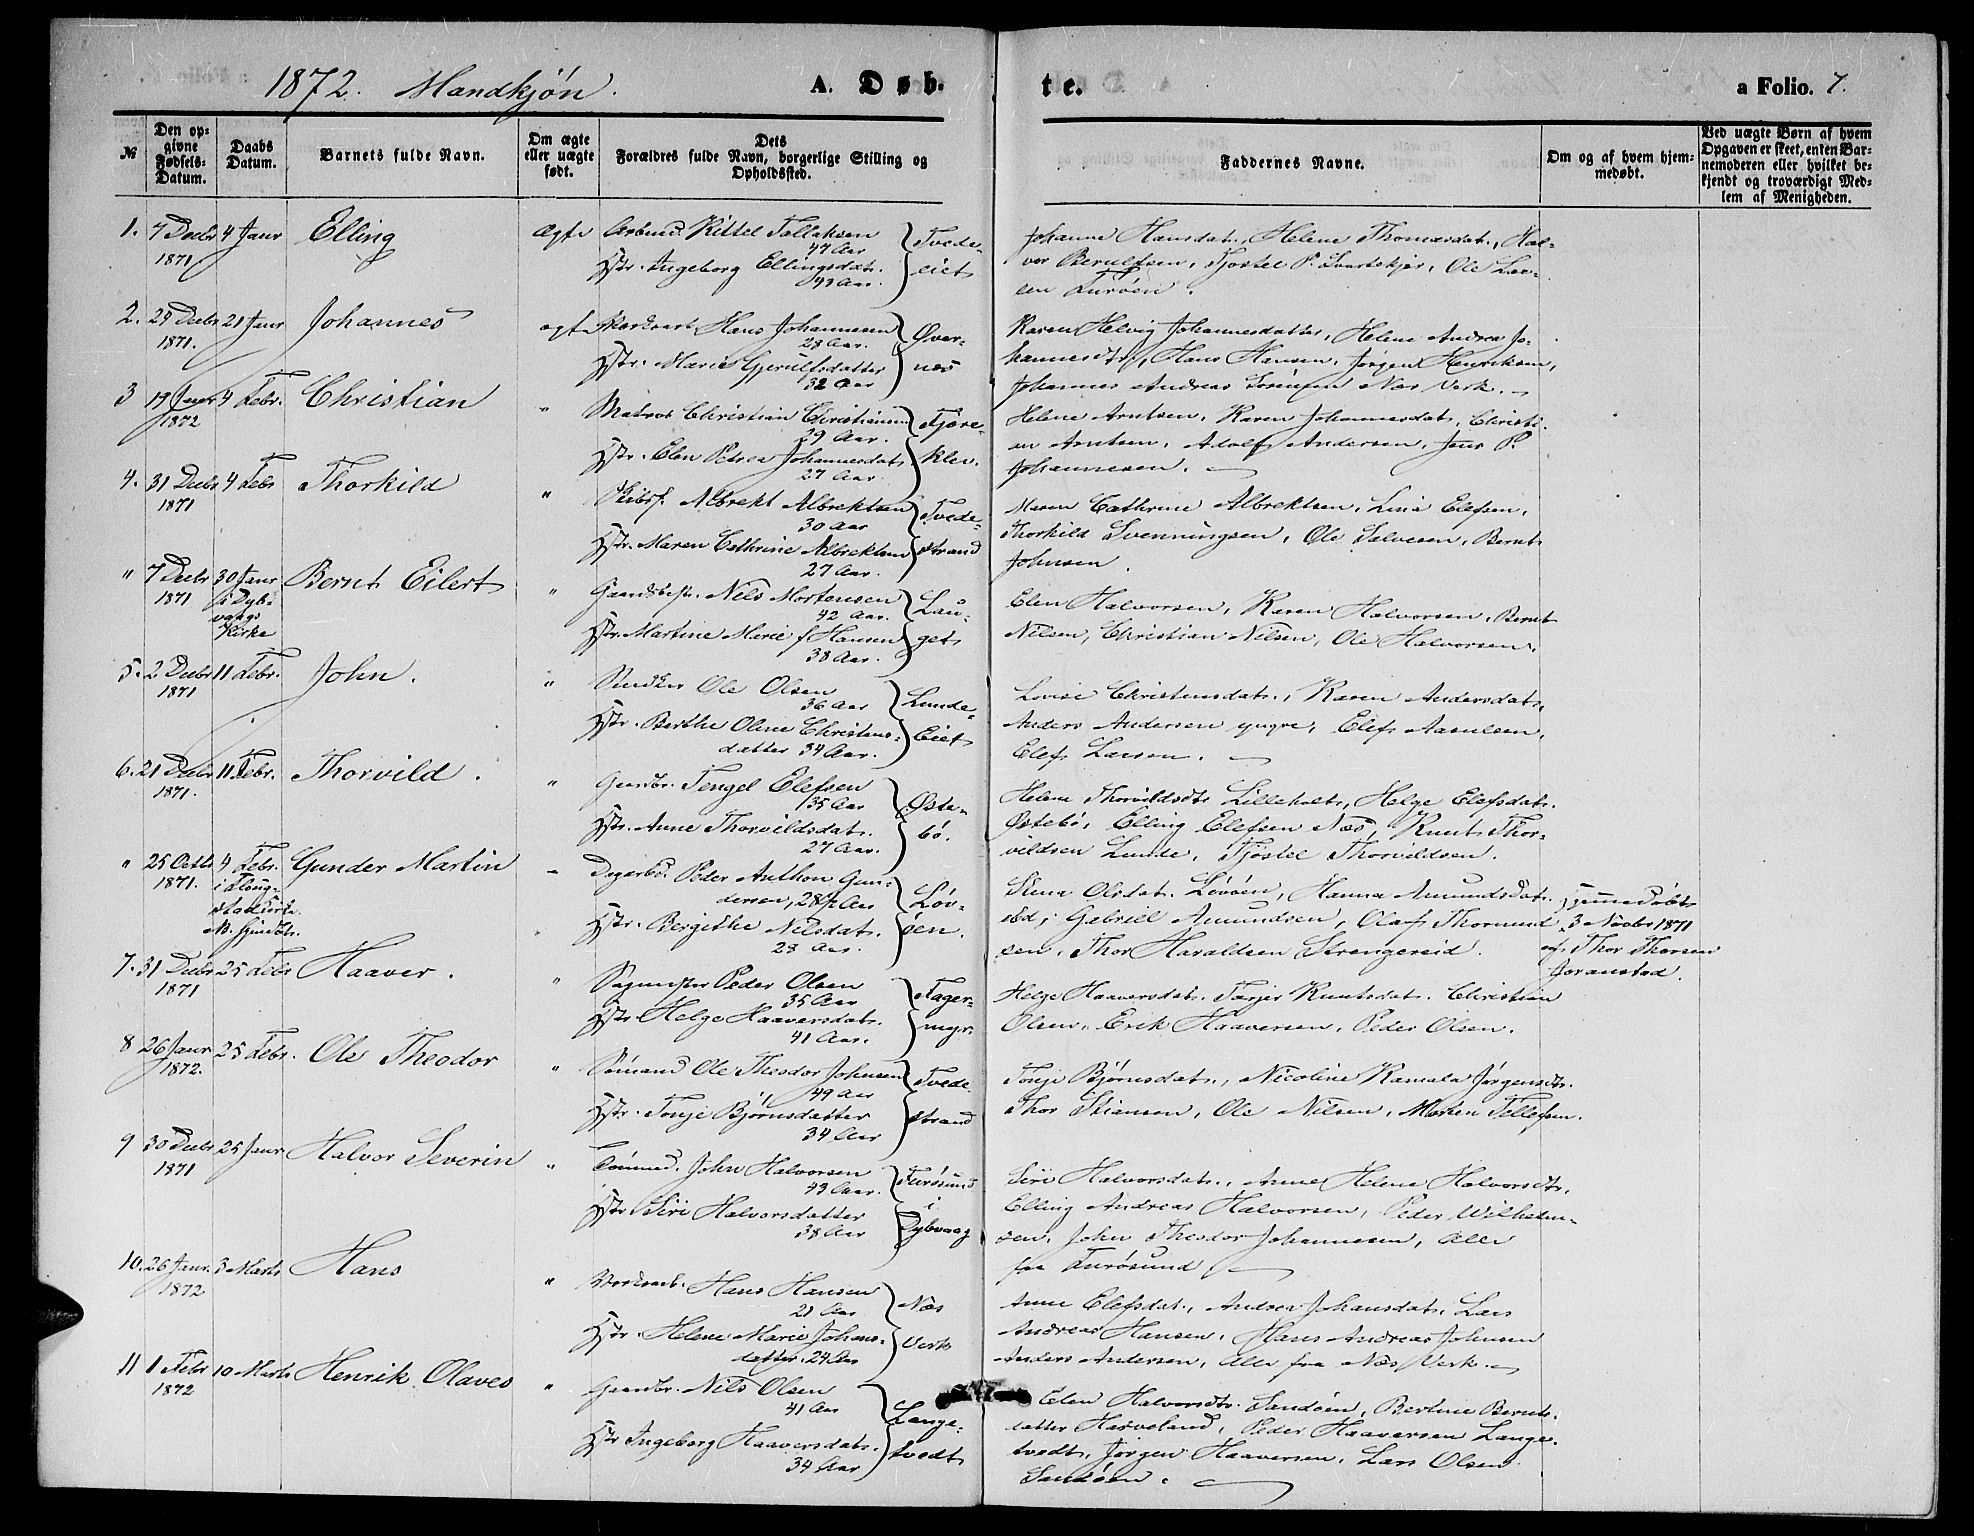 1872. Mandkjøn.
A. Døb-
te.
a Folio. 7.
№
Den op-
givne
Fødsels-
Datum.
Daabs
Datum.
Barnets fulde Navn.
Om ægte
eller uægte
født.
Dets
Forældres fulde Navn, borgerlige Stilling og
Opholdssted.
Faddernes Navne.
Om og af hvem hjem-
medøbt.
Ved uægte Børn af hvem
Opgaven er skeet, enten Bar-
nemoderen eller hvilket be-
kjendt og troværdigt Med-
lem af Menigheden.
1. 7 Decbr 4 Janr Elling ægte Arbmd. Kittel Tallaksen
1871 47 Aar Tvede-
Hstr. Ingeborg Ellingsdatr. eiet
43 Aar.
Johanne Hansdatr., Helene Thomasdatr., Hal-
vor Berulfsen, Tjøstel P. Svartekjær, Ole Lar-
sen Furøen.
2. 29 Decbr 21 Janr Johannes ægte Hans Johannesen
1871. 28 Aar. Øver-
Hstr. Marie Gjerulfsdatter næs
32 Aar
Karen Helvig Johannesdatter, Helene Andrea Jo-
hannesdtr, Hans Hansen, Jørgen Henriksen,
Johannes Andreas Sørensen Næs Verk.
3 19 Janr 4 Febr. Christian " Matros Christian Christiansen
1872 29 Aar. Fjære-
Hstr. Elen Petrea Johannesdatr klev.
27 Aar.
Helene Arntsen, Karen Johannesdatr, Christi-
an Arntsen, Adolf Andersen, Jens P.
Johannesen.
4. 31 Decbr 4 Febr Thorkild " Skibsf. Albrekt Albrektsen
1871 30 Aar Tvede-
Hstr. Maren Cathrine Albrektsen strand
27 Aar.
Maren Cathrine Albrektsen, Lina Elefsen,
Thorkild Svenningsen, Ole Salvesen, Bernt
Johnsen.
" 7 Decbr 30 Janr Bernt Eilert " Gaardbr. Nels Mortensen
1871 i Dyb- 42 Aar. Lau-
vaags Hstr. Martine Marie f Hansen get
Kirke 38 Aar.
Elen Halvorsen, Karen Halvorsen, Bernt
Nilsen, Christian Nilsen, Ole Halvorsen.
5. 2 Decbr 11 Febr. John. " Snedker Ole Olsen
1871 36 Aar Lunde-
Hstr. Berthe Oline Christens- Eiet
datter 34 Aar.
Lovise Christensdatr., Karen Andersdatr,
Anders Andersen yngre, Elef Aanulsen,
Elef Larsen.
6. 21 Decbr 11 Febr. Thorvild. " Gaardbr. Tengel Elefsen
1871. 35 Aar Øste-
Hstr. Anne Thorvildsdatr. bø.
27 Aar.
Helene Thorvildsdtr Lilleholt, Helge Elefsdatr.
Østebø, Elling Elefsen Næs, Knut Thor-
vildsen Lunde, Tjøstel Thorvildsen.
" 25 Octbr 4 Febr. Gunder Martin Peder Anthon Gun-
1871. i Floug- dersen, 28½ Aar Løv-
stad Kirke Hstr. Bergithe Nilsdatr. øen.
23 Aar.
Siena Olsdatr. Løvøen, Hanna Amundsdatr.
Gabriel Amundsen, Olaf Thormund-
sen, Thor Haraldsen Strengereid.
Hjemmedøbt
3 Novbr 1871
af Thor Thorsen
Goranstad.
7. 31 Decbr 25 Febr Haaver. " Sagmester Peder Olsen
1871 35 Aar Fager-
Hstr Helge Haaversdatr. myr.
41 Aar.
Helge Haaversdatr. Tarjer Knutsdatr. Christian
Olsen, Erik Haaversen, Peder Olsen.
8 26 Janr 25 Febr. Ole Theodor " Sømand Ole Theodor Johnsen
1872. 49 Aar Tvede-
Hstr. Tonje Bjørnsdatter strand
34 Aar
Tonje Bjørnsdatr., Nicoline Kamala Jørgensdtr.
Thor Stiansen, Ole Nilsen, Morten Tellefsen.
9 30 Decbr 25 Janr Halvor Severin " Tømmd. John Halvorsen
1871 43 Aar. Furøsund
Hstr. Siri Halvorsdatter i
38 Aar Dybvaag
Siri Halvorsdatr., Anne Helene Halvorsdtr,
Elling Andreas Halvorsen, Peder Wilhelm-
sen, John Theodor Johannesen, Alle
fra Furøsund
10. 26 Janr. 3 Marts Hans " Verksarb. Hans Hansen
1872 21 Aar Næs
Hstr. Helene Marie Johans- Verk
datter. 24 Aar
Anne Elefsdatr., Andrea Johansdatr, Lars
Andreas Hansen, Hans Andreas Johnsen
Anders Andersen, Alle fra Næs Verk.
11 1 Febr 10 Marts Henrik Olaves " Gaardbr. Nils Olsen
1872 41 Aar Lange-
Hstr Ingeborg Haaversdatr. tvedt
34 Aar
Elen Halvorsdtr. Sandøen, Bertine Bernts-
datter Harveland, Peder Haaversen Lange-
tvedt, Jørgen Haaversen, Lars Olsen
Sandøen.